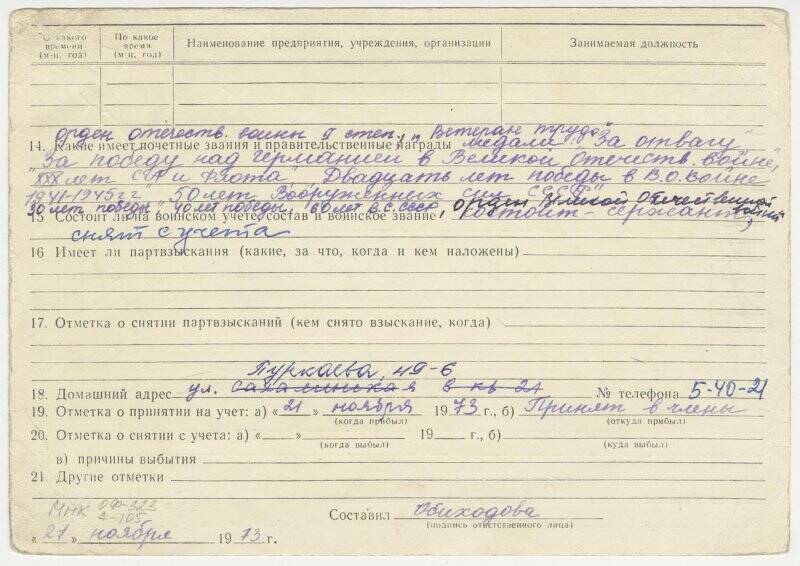 С какого времени (м-ц, год) По какое время (м-ц, год) Наименование предприятия, учреждения, организации Занимаемая должность
орден отечеств. войны II степ., "Ветеран труда"
14. Какие имеет почетные звания и правительственные награды медали: "За отвагу"
"За победу над Германией в Великой отечеств. войне",
"XXX лет СА и Флота" Двадцать лет победы в В.О. войне
1941-1945 гг" 50 лет Вооруженных сил СССР"
30 лет победы, 40 лет победы, 60 лет В.С. СССР, орден Великой Отечественной войны
15 Состоит ли на воинском учете, состав и воинское звание состоит - сержант,
снят с учета
16 Имеет ли партвзыскания (какие, за что, когда и кем наложены)
17. Отметка о снятии партвзысканий (кем снято взыскание, когда)
Пуркаева, 49-6
18. Домашний адрес ул. Сахалинская 8 кв 21 № телефона 5-40-21
19. Отметка о принятии на учет: а) «21» ноября 1973 г., б) Принят в члены
(когда прибыл) (откуда прибыл)
20. Отметка о снятии с учета: а) « » 19 г., б)
(когда выбыл) (куда выбыл)
в) причины выбытия
21. Другие отметки
МНК ОФ-223
А-105
Составил Обиходова
(подпись ответственного лица)
«21» ноября 1973 г.